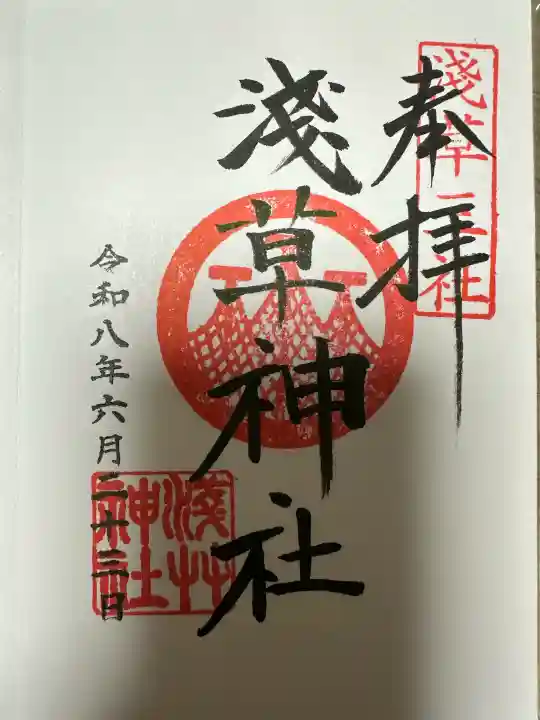 浅草三社
奉拝
淺草神社
令和八年六月二十三日
淺艸
神社